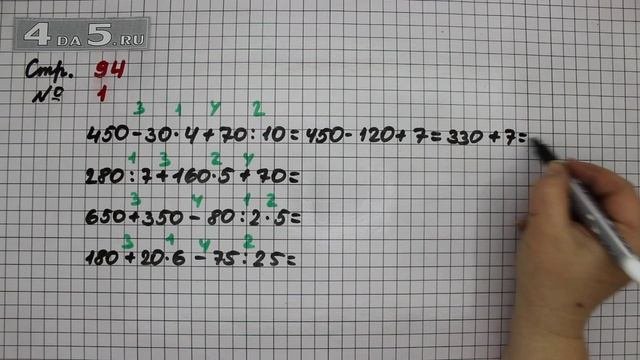 4 DA 5.RU
Стр. 94
№ 1
3 1 4 2
450-30·4+70:10=450-120+7=330+7=
1 3 2 4
280:7+160·5+70=
3 4 1 2
650+350-80:2·5=
3 1 4 2
180+20·6-75:25=